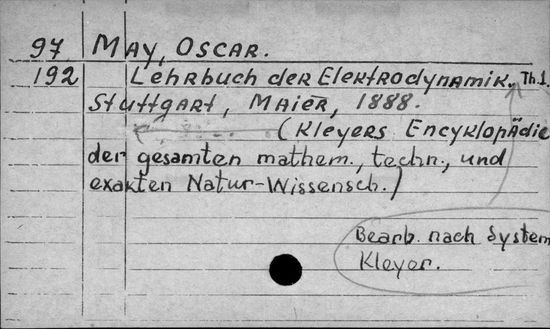 97 May, Oscar.
192 Lehrbuch der Elektrodynamik. Th.1.
Stuttgart, Maier, 1888.
(Kleyers Encyklopädie
der gesamten mathem., techn., und
exakten Natur-Wissensch.)
Bearb. nach System
Kleyer.